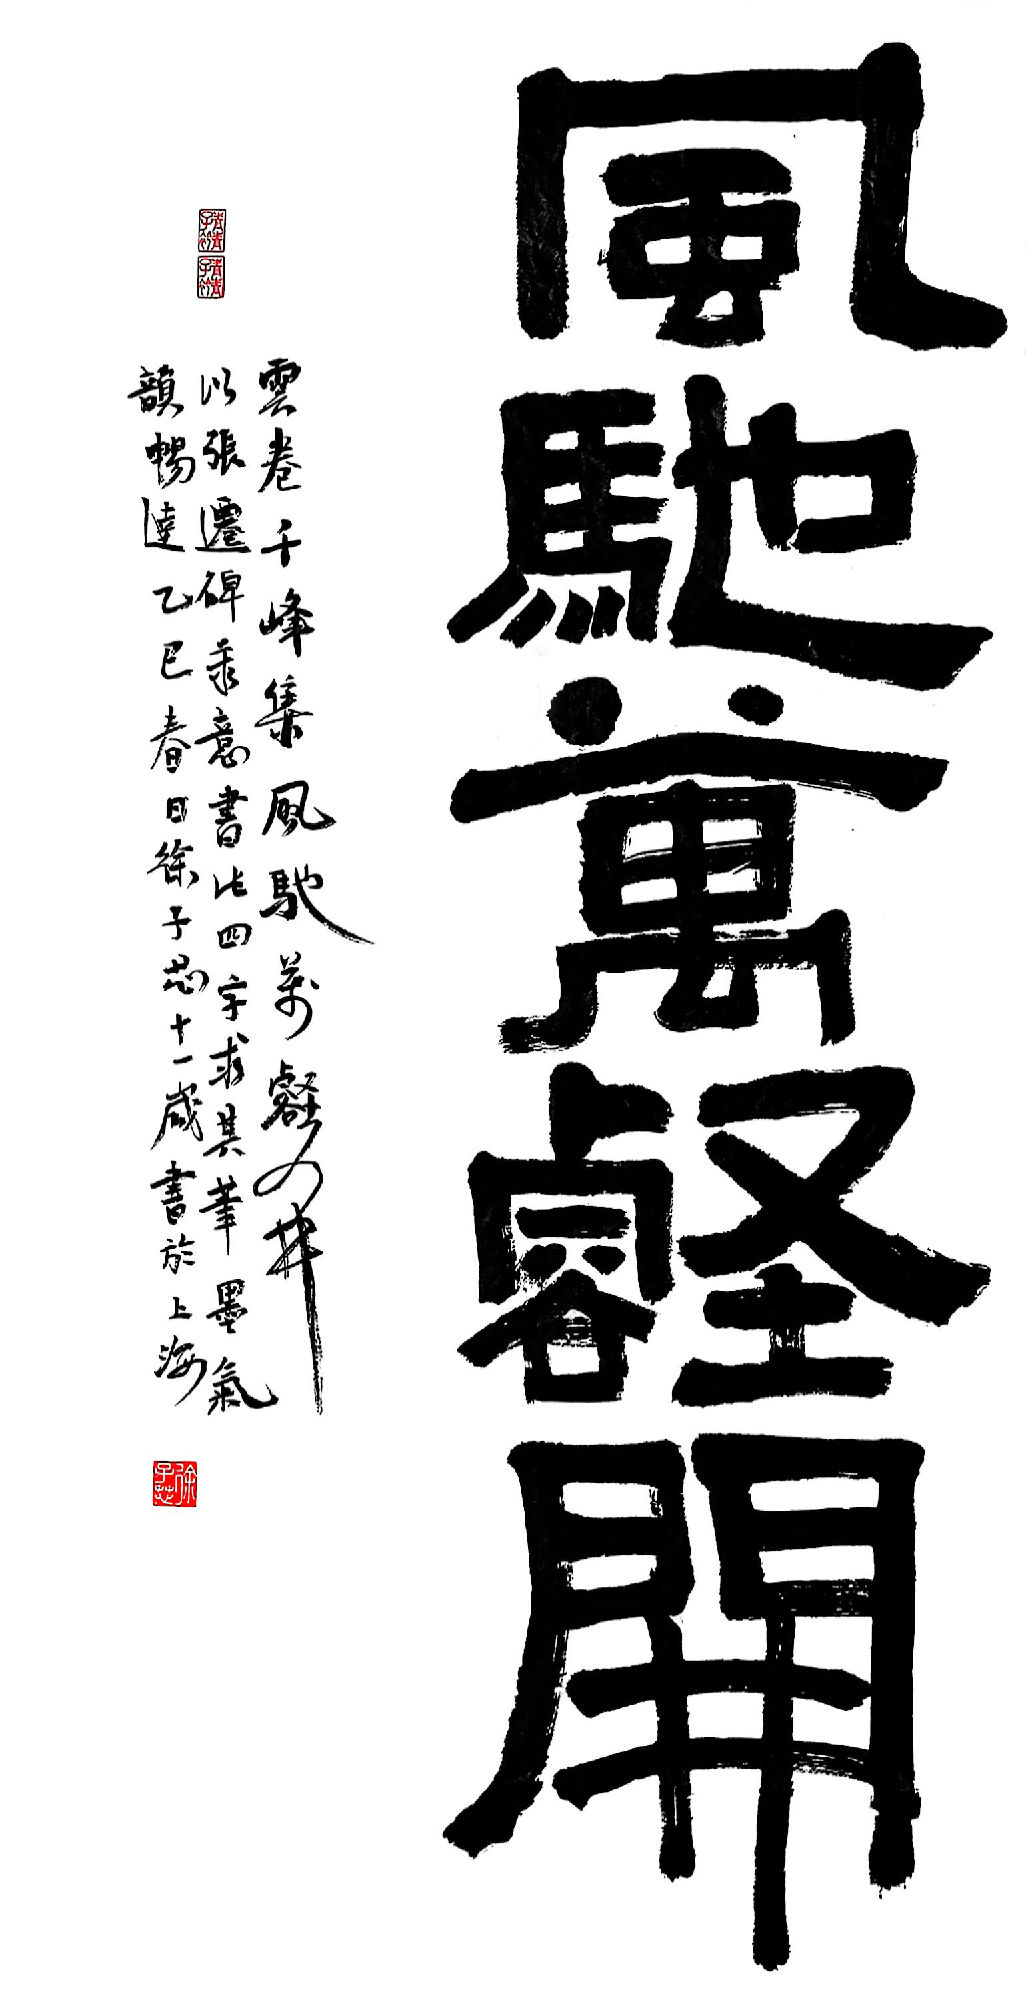 風馳萬壑開
雲卷千峰集風馳萬壑開
以張遷碑隶意書此四字求其筆墨氣
韻暢達乙巳春日徐子十一歲書於上海
徐子